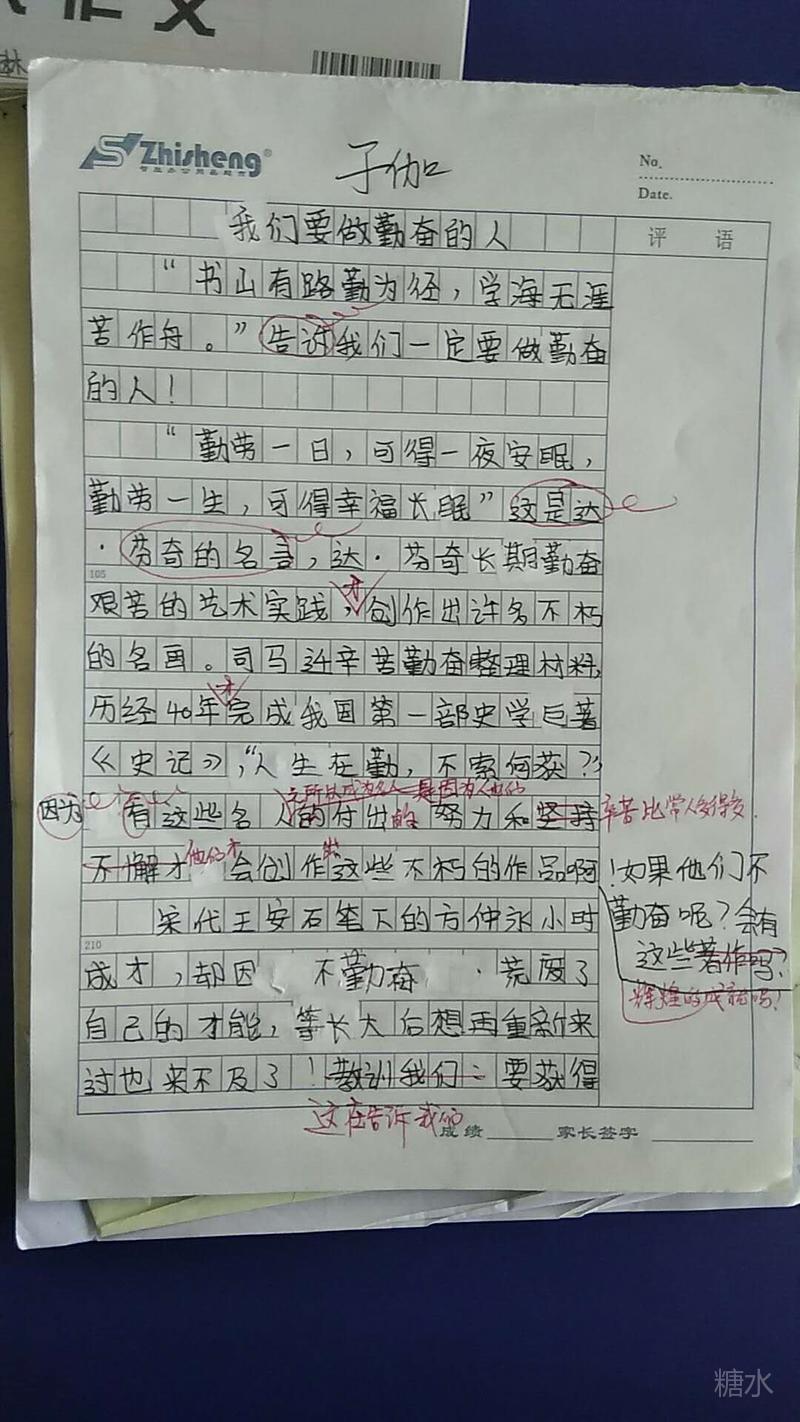 作文
林
Zhisheng
子伽
No.
Date.
我们要做勤奋的人
评 语
“书山有路勤为径，学海无涯
苦作舟。”告诉我们一定要做勤奋
的人！
“勤劳一日，可得一夜安眠，
勤劳一生，可得幸福长眠”这是达
·芬奇的名言，达·芬奇长期勤奋
105
才
艰苦的艺术实践，创作出许多不朽
的名画。司马迁辛苦勤奋整理材料，
才
历经40年完成我国第一部史学巨著
《史记》，“人生在勤，不索何获？”
之所以成为名人 是因为他们
因为有这些名人的付出的努力和坚持 辛苦比常人多得多.
不懈才他们才会创作出这些不朽的作品啊！如果他们不
勤奋呢？会有
这些著作吗？
辉煌的成就吗！
宋代王安石笔下的方仲永小时
210
成才，却因不勤奋·荒废了
自己的才能，等长大后想再重新来
过也来不及了！教训我们：要获得
这在告诉我们
成绩 家长签字
糖水